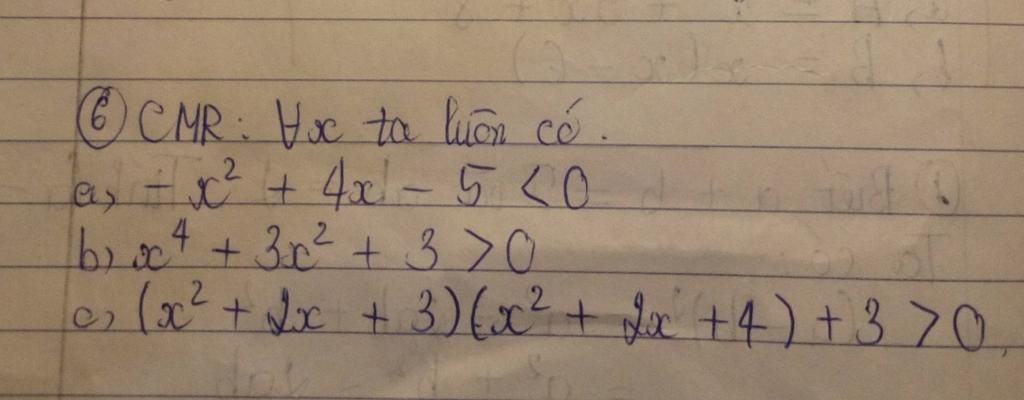 ⑥ CMR: ∀x ta luôn có.
a, - x² + 4x - 5 < 0
b) x⁴ + 3x² + 3 > 0
c, (x² + 2x + 3)(x² + 2x + 4) + 3 > 0